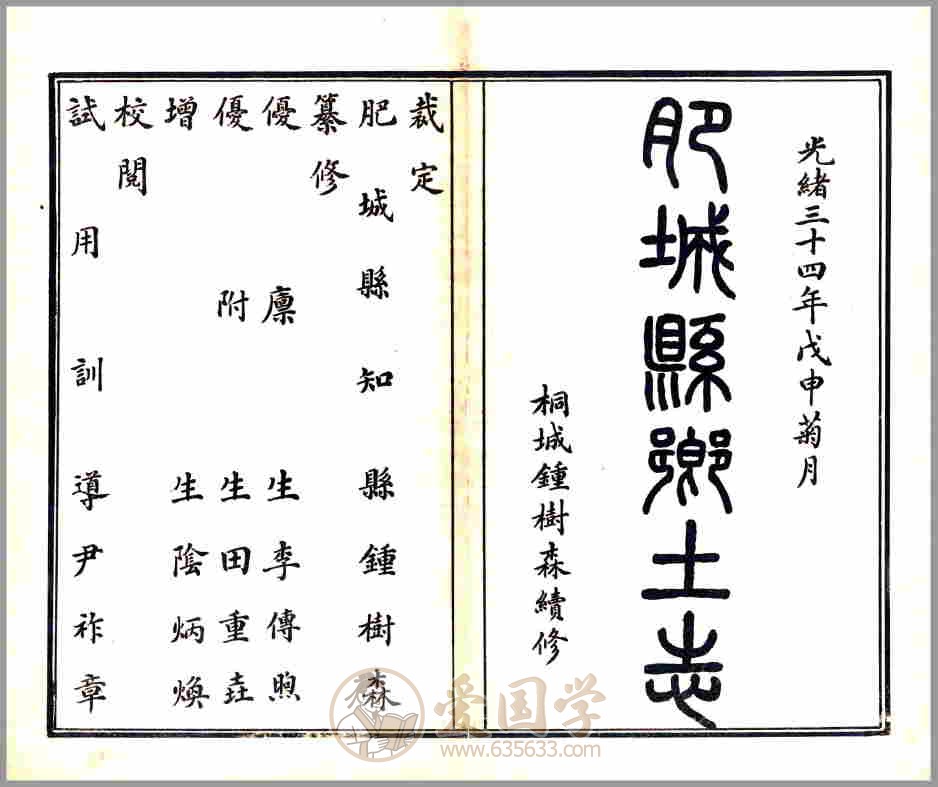 光緒三十四年戊申菊月
肥城縣鄉土志
桐城鍾樹森續修
裁定
肥城縣知縣鍾樹森
纂修
優廩生李傳煦
優附生田重垚
增生陰炳煥
校閱
試用訓導尹祚章
爱国学
www.635633.com